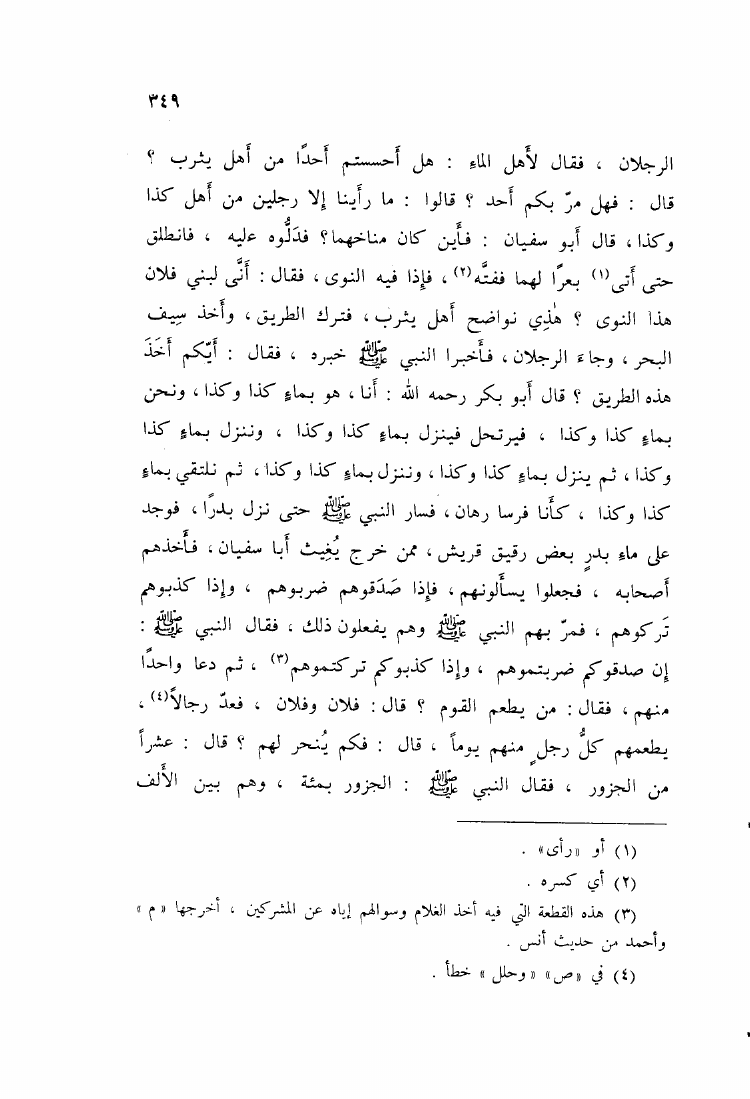 ٣٤٩
الرجلان ، فقال لأهل الماءِ : هل أَحسستم أَحدًا من أَهل يثرب ؟
قال : فهل مرّ بكم أَحد ؟ قالوا : ما رأَينا إلا رجلين من أَهل كذا
وكذا ، قال أَبو سفيان : فأَين كان مناخهما ؟ فدَلُّوه عليه ، فانطلق
حتى أَتى(١) بعرًا لهما ففتَّه(٢) ، فإِذا فيه النوى ، فقال : أَنَّى لبني فلان
هذا النوى ؟ هٰذِي نواضح أَهل يثرب ، فترك الطريق ، وأَخذ سِيف
البحر ، وجاءَ الرجلان ، فأَخبرا النبي ﷺ خبره ، فقال : أَيّكم أَخَذَ
هذه الطريق ؟ قال أَبو بكر رحمه الله : أَنا ، هو بماءِ كذا وكذا ، ونحن
بماءِ كذا وكذا ، فيرتحل فينزل بماءِ كذا وكذا ، وننزل بماءِ كذا
وكذا ، ثم ينزل بماءِ كذا وكذا ، وننزل بماءِ كذا وكذا ، ثم نلتقي بماءِ
كذا وكذا ، كأَنا فرسا رهان ، فسار النبي ﷺ حتى نزل بدرًا ، فوجد
على ماءِ بدرٍ بعض رقيق قريش ، ممن خرج يُغِيث أَبا سفيان ، فأَخذهم
أَصحابه ، فجعلوا يسأَلونهم ، فإِذا صَدَقوهم ضربوهم ، وإِذا كذبوهم
تَركوهم ، فمرّ بهم النبي ﷺ وهم يفعلون ذلك ، فقال النبي ﷺ :
إِن صدقوكم ضربتموهم ، وإِذا كذبوكم تركتموهم(٣) ، ثم دعا واحدًا
منهم ، فقال : من يطعم القوم ؟ قال : فلان وفلان ، فعدّ رجالاً(٤) ،
يطعمهم كلُّ رجلٍ منهم يوماً ، قال : فكم يُنحر لهم ؟ قال : عشراً
من الجزور ، فقال النبي ﷺ : الجزور بمئة ، وهم بين الأَلف
(١) أو «رأى» .
(٢) أي كسره .
(٣) هذه القطعة التي فيه أخذ الغلام وسوالهم إياه عن المشركين ، أخرجها «م»
وأحمد من حديث أنس .
(٤) في «ص» «وحلل» خطأ .